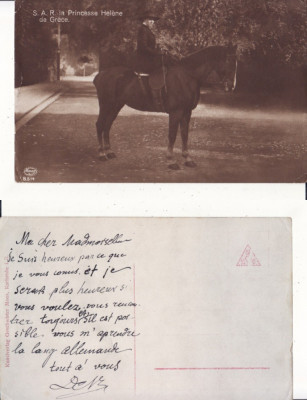 S. A. R. la Princesse Hélène
de Grèce.
Ma cher Madmoiselle
Je suis heureux par ce que
je vous connus. et je
serais plus heureux si
vous voulez, vous rencon
trer toujours, s'il est pos
sible. vous m'aprendre
la lang allemande
tout a' vous